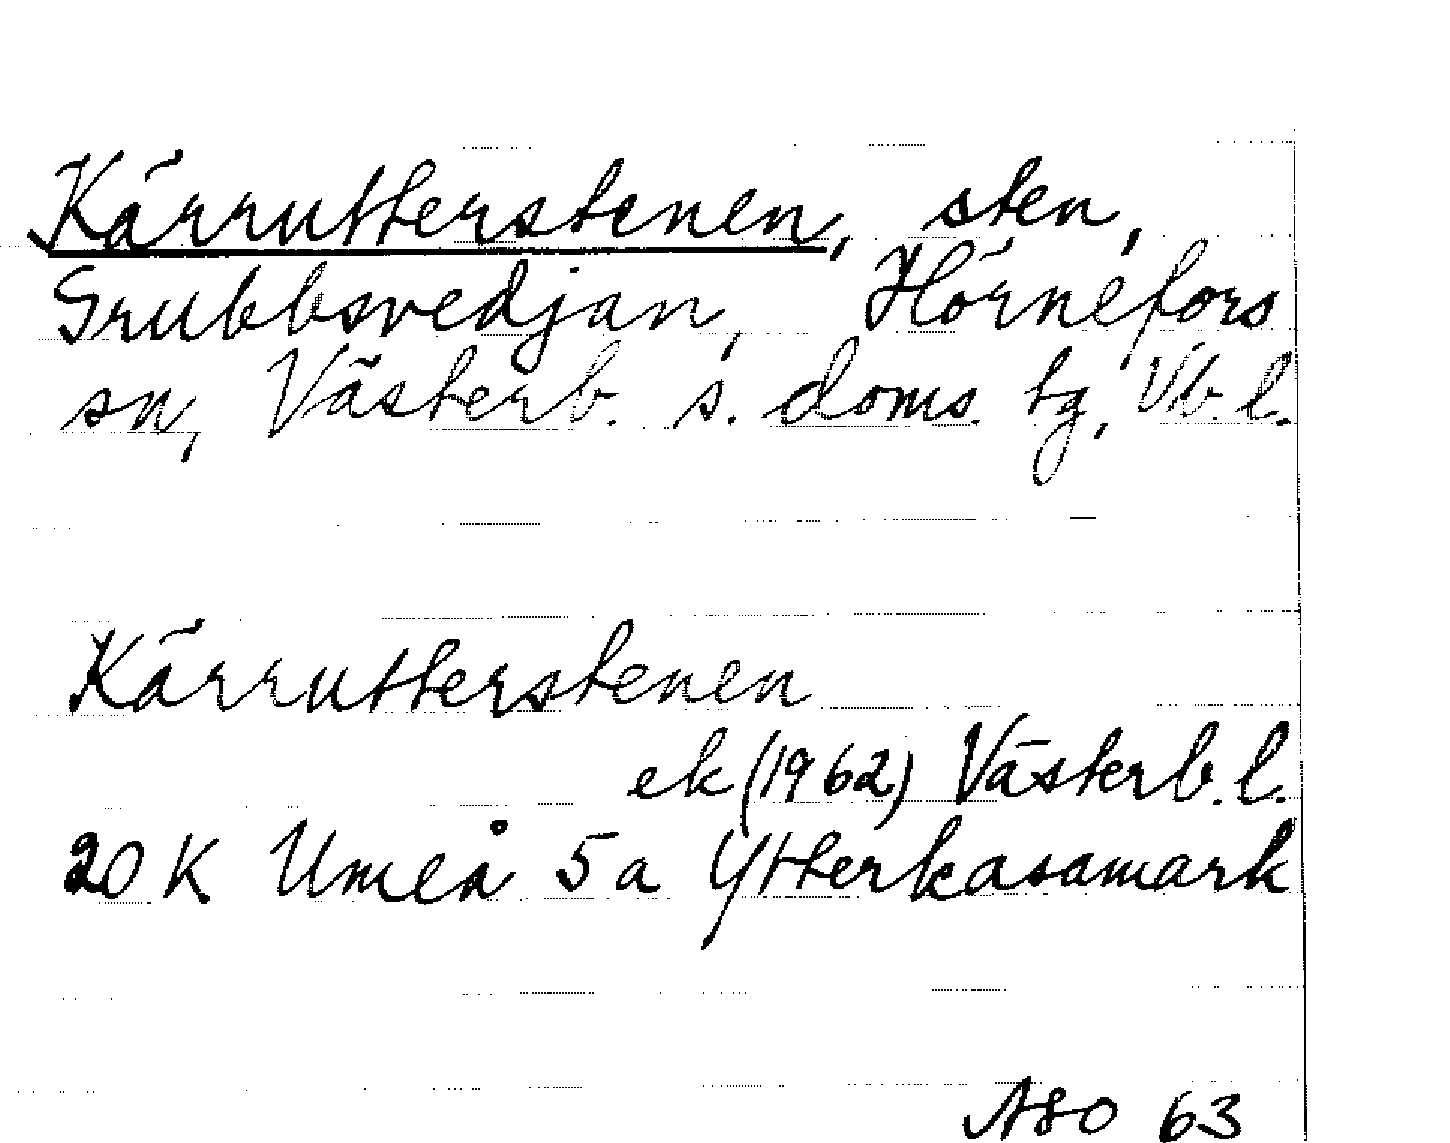 Kärrutterstenen, sten,
Grubbsvedjan, Hörnefors
sn, Västerb. s. doms. tg, Vb. l.
Kärrutterstenen
ek (1962) Västerb. l.
20 K Umeå 5a Ytterkasamark
ASO 63